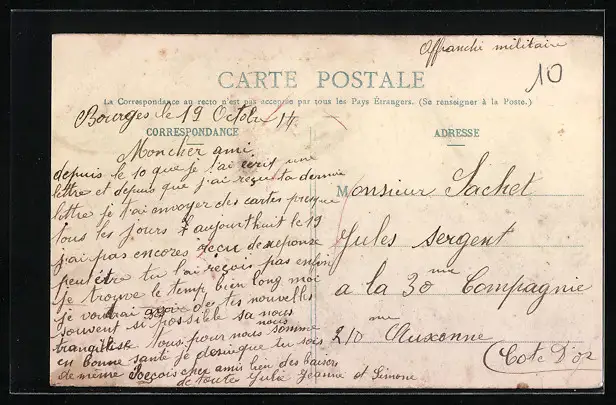 Affranchi militaire
10
CARTE POSTALE
La Correspondance au recto n'est pas acceptée par tous les Pays Étrangers. (Se renseigner à la Poste.)
Bourges le 19 Octobre 14
CORRESPONDANCE
Moncher ami
depuis le 10 que je t'ai écris une
lettre et depuis que j'ai reçu ta dernière
lettre je t'ai envoyer des cartes presque
tous les jours aujourdhuit le 19
j'ai pas encores recu de reponse
peut être tu l'ai reçois pas enfin
je trouve le temps bien long moi
je voudrai de tes nouvelles
souvent si possible sa nous
nous
tranquilise tous pour nous somme
en bonne santé je desire que tu sois
de même Reçois cher amis bien des baisers
de toute Julie Jeanne et Simone
ADRESSE
Monsieur Sachet
Jules sergent
a la 30 me Compagnie
210 me Auxonne
(Cote D'or